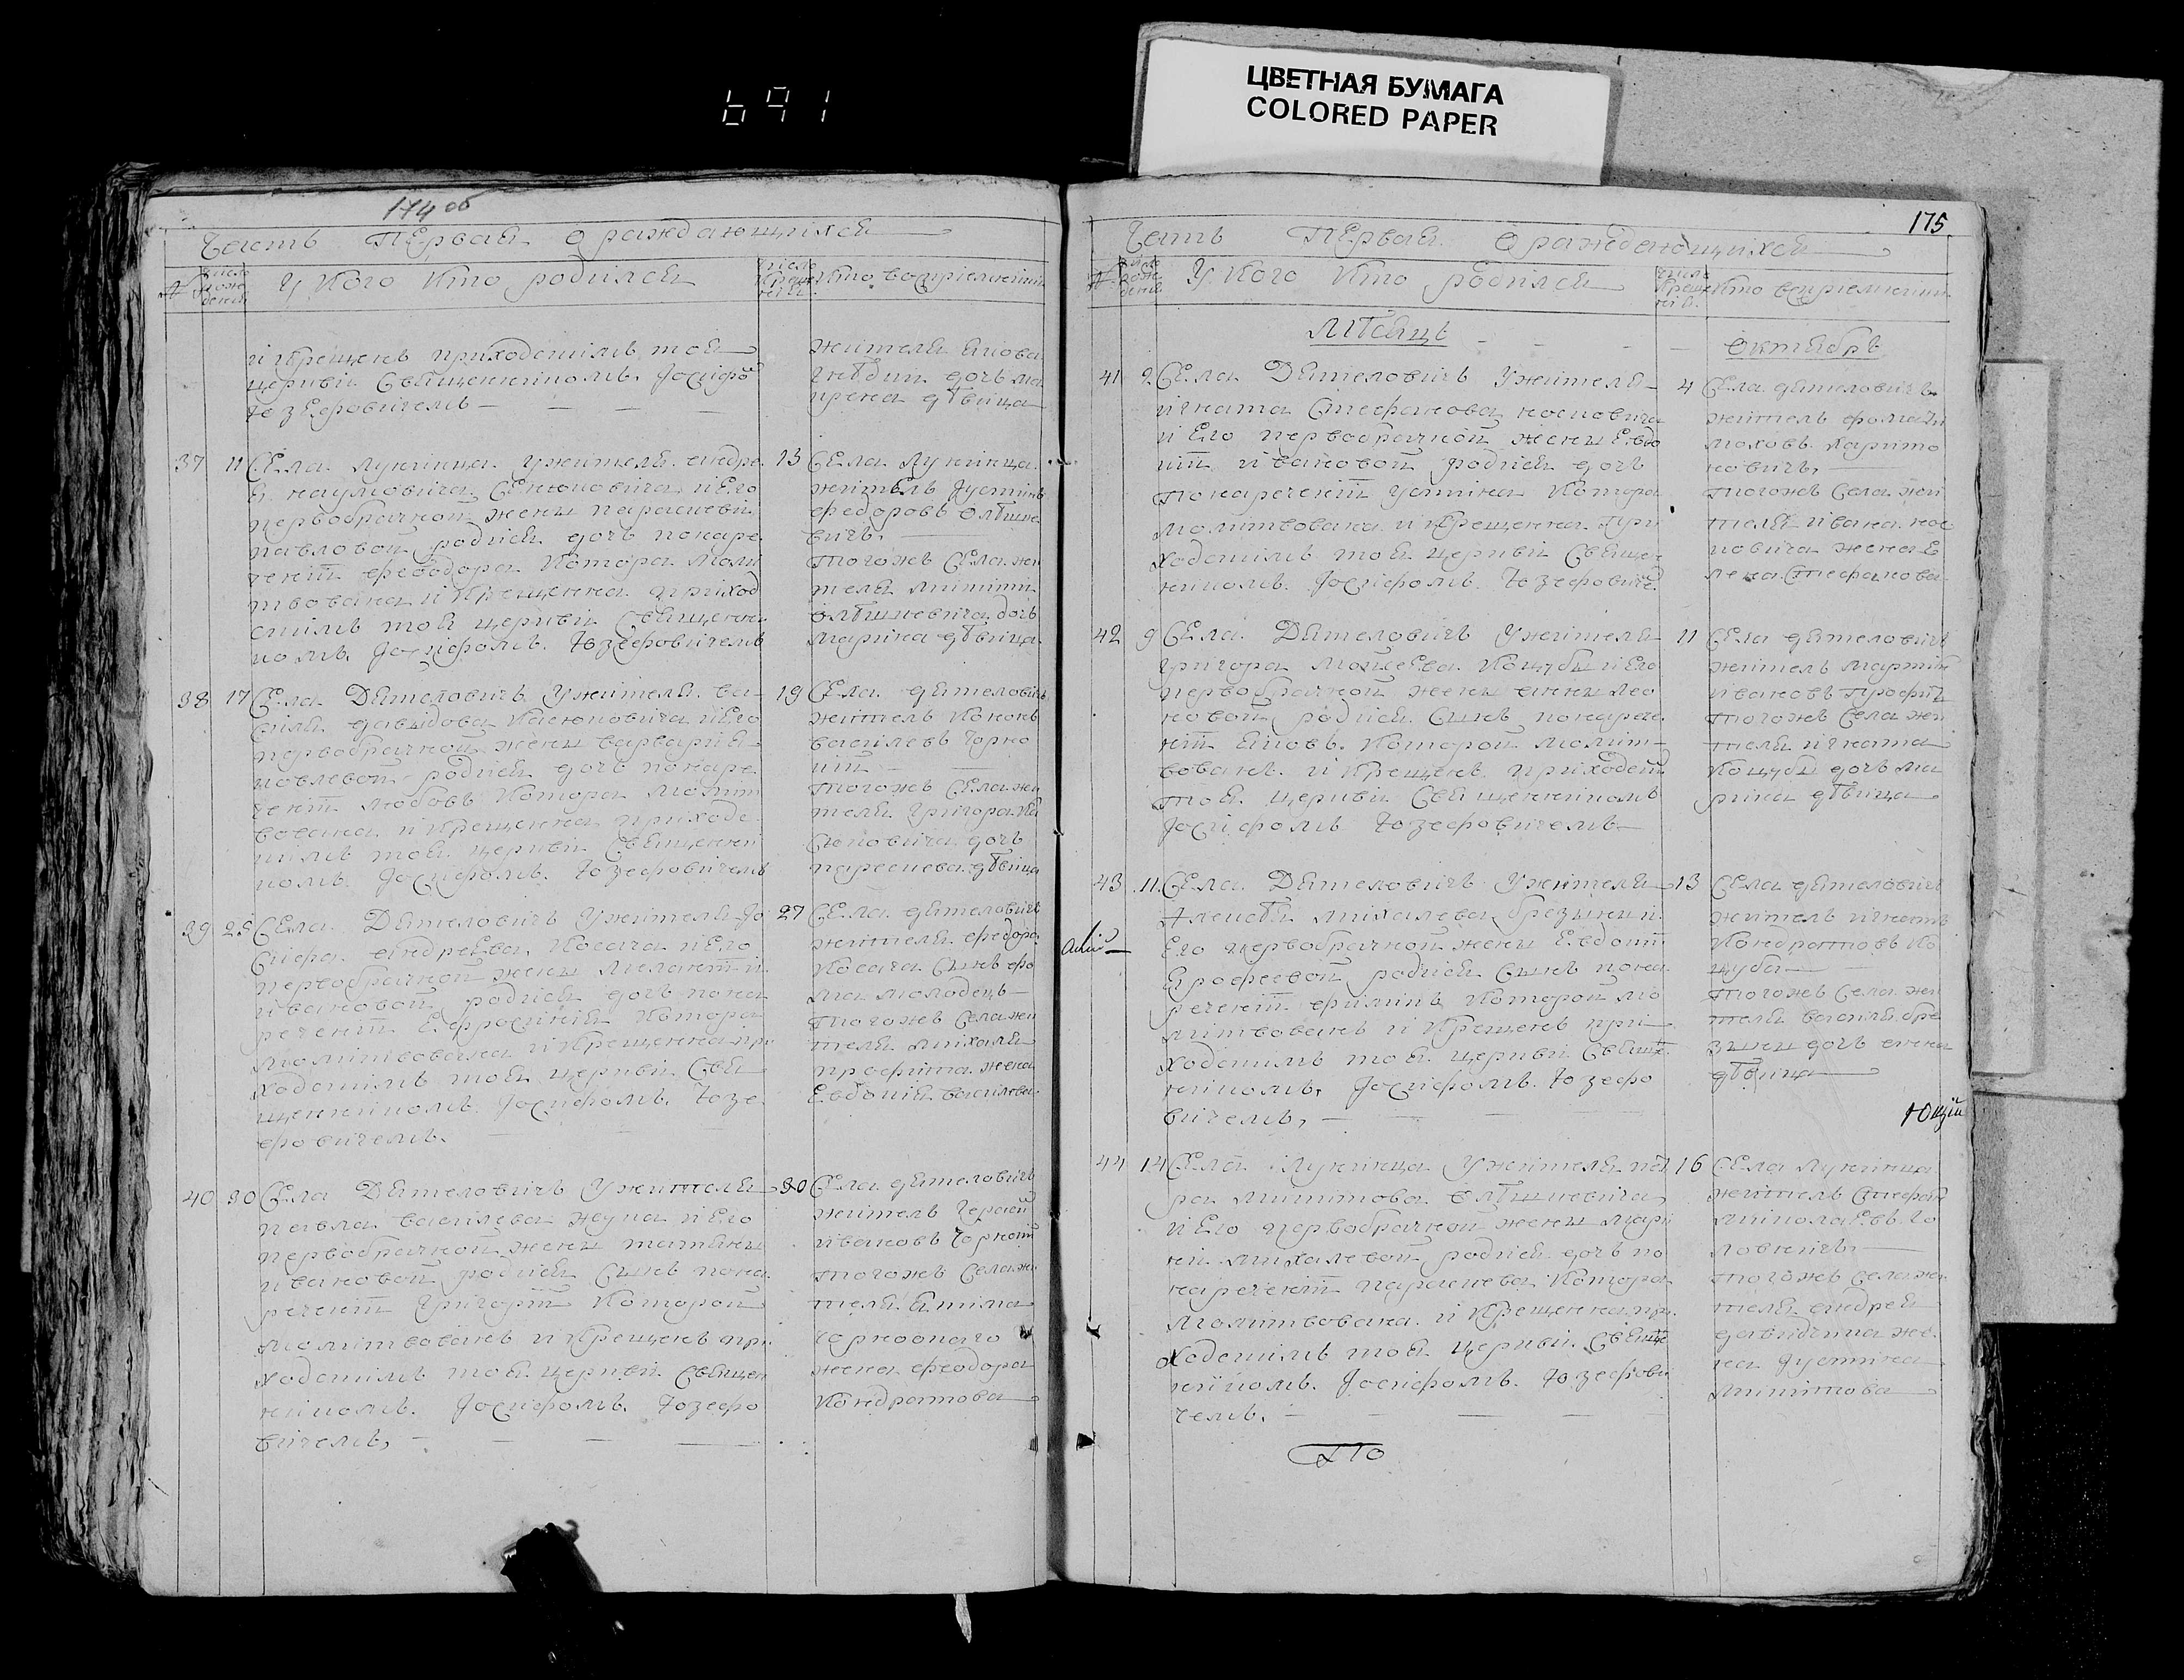 691
ЦВЕТНАЯ БУМАГА
COLORED PAPER
174 об
Часть Первая О раждающихся
№ число рождения У кого кто родился число крещения кто восприемники
и крещенъ приходскимъ тоя
церкви Священникомъ Iосифо
Юзефовичемъ
жителя Якова
дочь ма
дѣвица
37 11 Села Лунинца у жителя андре
я наумовича Сенюковича и Его
первобрачной жены параскеви
павловой родися дочь нонаре
ченiя феодора котора моли
твована и крещенна приход
скимъ тоя церкви Священни
комъ Iосифомъ Юзефовичемъ
13 Села Лунинца
житель Iустинъ
федоровъ Олѣшке
вичъ
тогожъ Села жи
теля микити
олѣшкевича дочь
марина дѣвица
38 17 Села Дятеловичъ У жителя ва
силя давидова Касюковича и Его
первобрачной жены варвари Я
ковлевой родися дочь понаре
ченiя любовь котора молит
вована и крещенна приход
скимъ тоя церкви Священни
комъ Iосифомъ Юзефовичемъ
19 Села дятеловичъ
житель кононъ
василевъ Чорно
тогожъ Села жи
теля григора Ка
сюковича дочь
параскева дѣвица
39 25 Села Дятеловичъ У жителя Iо
сифа андреева Косача и Его
первобрачной жены мелантiи
ивановой родися дочь пона
реченiя Ефросинiя котора
молитвована и крещенна при
ходскимъ тоя церкви Свя
щенникомъ Iосифомъ Юзе
фовичемъ
27 Села дятеловичъ
жителя федора
Косача Сынъ фо
ма молодецъ
тогожъ Села жи
теля михаля
профита жена
Евдокiя василева
40 30 Села Дятеловичъ У жителя
павла василева жука и Его
первобрачной жены татяны
ивановой родися Сынъ пона
реченiя Григорiй которой
молитвованъ и крещенъ при
ходскимъ тоя церкви Священ
никомъ Iосифомъ Юзефо
вичемъ
30 Села дятеловичъ
житель Герасiй
ивановъ Чорно
тогожъ Села жи
теля Якима
Чорноокаго
жена феодора
Кондратова
175
Часть Первая О раждающихся
№ число рождения У кого кто родился число крещения кто восприемники
Мѣсяцъ Октябръ
41 2 Села Дятеловичъ У жителя
игната Стефанова носковича
и Его первобрачной жены Евдо
кiи ивановой родися дочь
понареченiя Устина котора
молитвована и крещенна При
ходскимъ тоя церкви Священ
никомъ Iосифомъ Юзефовиче
4 Села дятеловичъ
житель фома ти
моховъ харито
новичъ
тогожъ Села жи
теля ивана нос
ковича жена Е
лена Стефанова
42 9 Села Дятеловичъ У жителя
григора Мойсеева Коцубы и Его
первобрачной жены анны лео
новой родися Сынъ понарече
нiя Яковъ которой молит
вованъ и крещенъ приходски
тоя церкви Священникомъ
Iосифомъ Юзефовичемъ
11 Села дятеловичъ
житель мартинъ
ивановъ профитъ
тогожъ Села жи
теля игната
Коцубы дочь ма
рина дѣвица
43 11 Села Дятеловичъ У жителя
Алексѣя михалева брезкуни
Его первобрачной жены Евдокiи
Ерофеевой родися Сынъ пона
реченiя филипъ которой мо
литвованъ и крещенъ при
ходскимъ тоя церкви Священ
никомъ Iосифомъ Юзефо
вичемъ
13 Села дятеловичъ
житель игнатъ
Кондратовъ Ко
цуба
тогожъ Села жи
теля василя бре
дочь анна
дѣвица
Юцiй
44 14 Села Лунинца У жителя пет
ра микитова Олѣшкевича
и Его первобрачной жены мари
ни михалевой родися дочь по
нареченiя параскева котора
молитвована и крещенна при
ходскимъ тоя церкви Священ
никомъ Iосифомъ Юзефови
чемъ
16 Села Лунинца
житель Стефанъ
миколаевъ Го
ловничъ
тогожъ Села жи
теля андрея
давидчика же
на Iустина
микитова